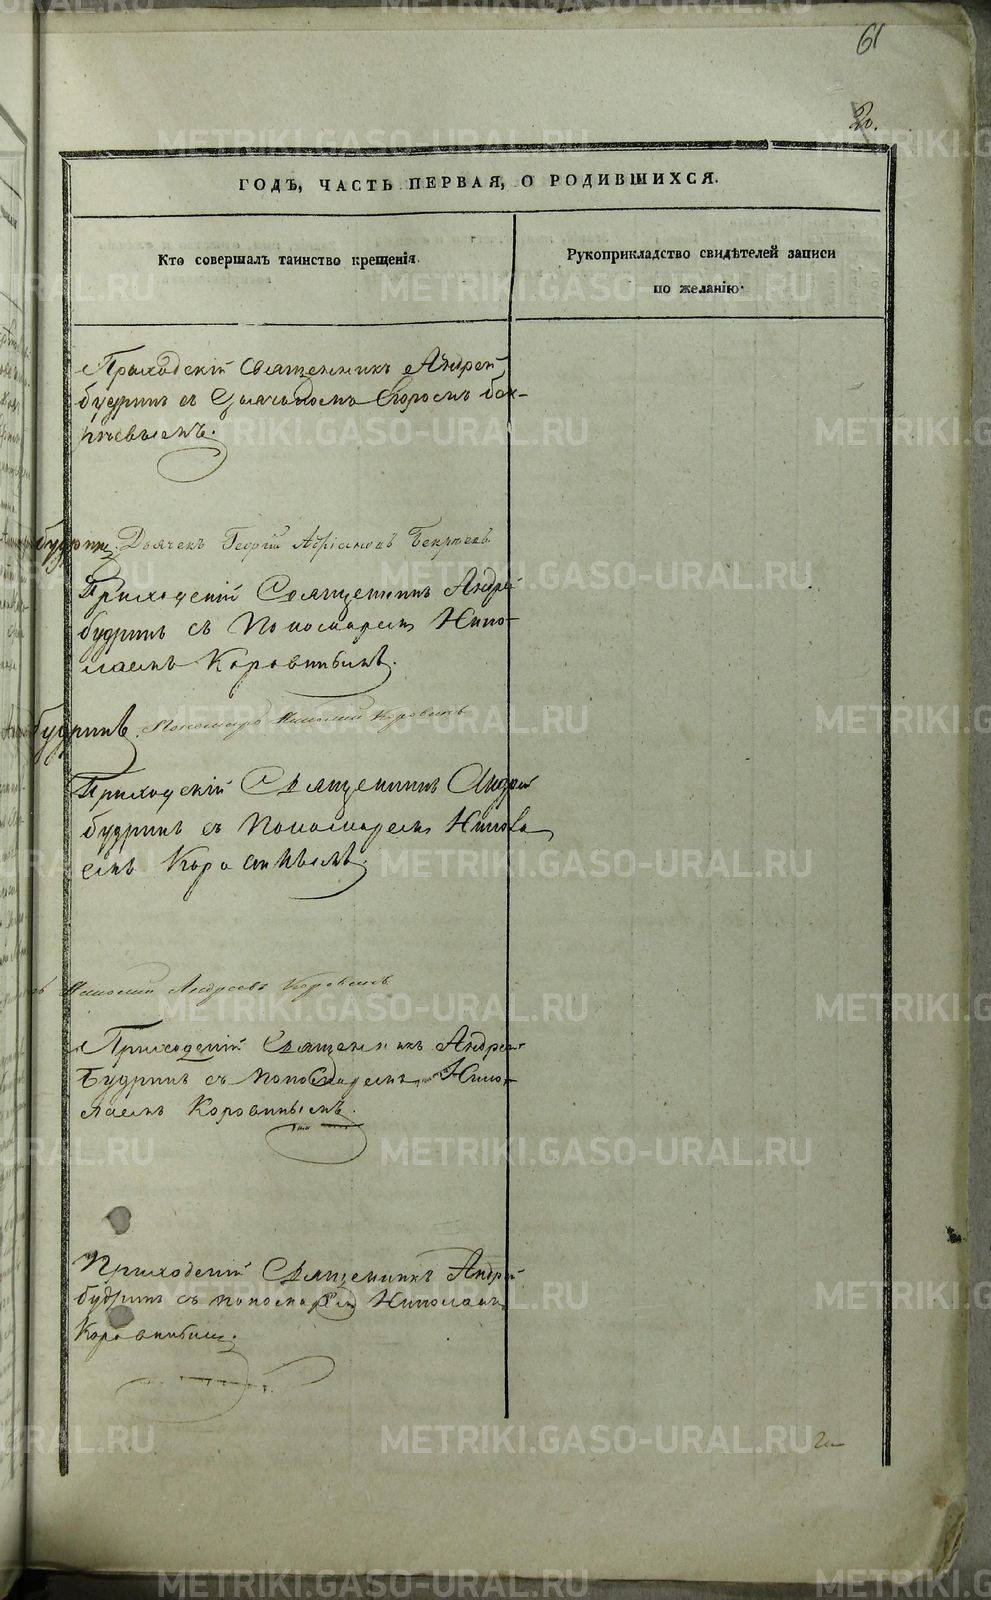 61
20.
ГОДЪ, ЧАСТЬ ПЕРВАЯ, О РОДИВШИХСЯ.
Кто совершалъ таинство крещенія.
Рукоприкладство свидѣтелей записи
по желанію.
Приходскій Священникъ Андрей
Будринъ съ Дьячкомъ
Будринъ. Дьячекъ Георгій Адріановъ
Приходскій Священникъ Андрей
Будринъ съ Пономаремъ Нико-
лаемъ Коровинымъ.
Будринъ. Пономарь Николай Коровинъ
Приходскій Священникъ Андрей
Будринъ съ Пономаремъ Никола
емъ Коровинымъ.
Николай Андреевъ Коровинъ
Приходскій Священникъ Андрей
Будринъ съ Пономаремъ Нико-
лаемъ Коровинымъ.
Приходскій Священникъ Андрей
Будринъ съ пономаремъ Николаемъ
Коровинымъ.
METRIKI.GASO-URAL.RU